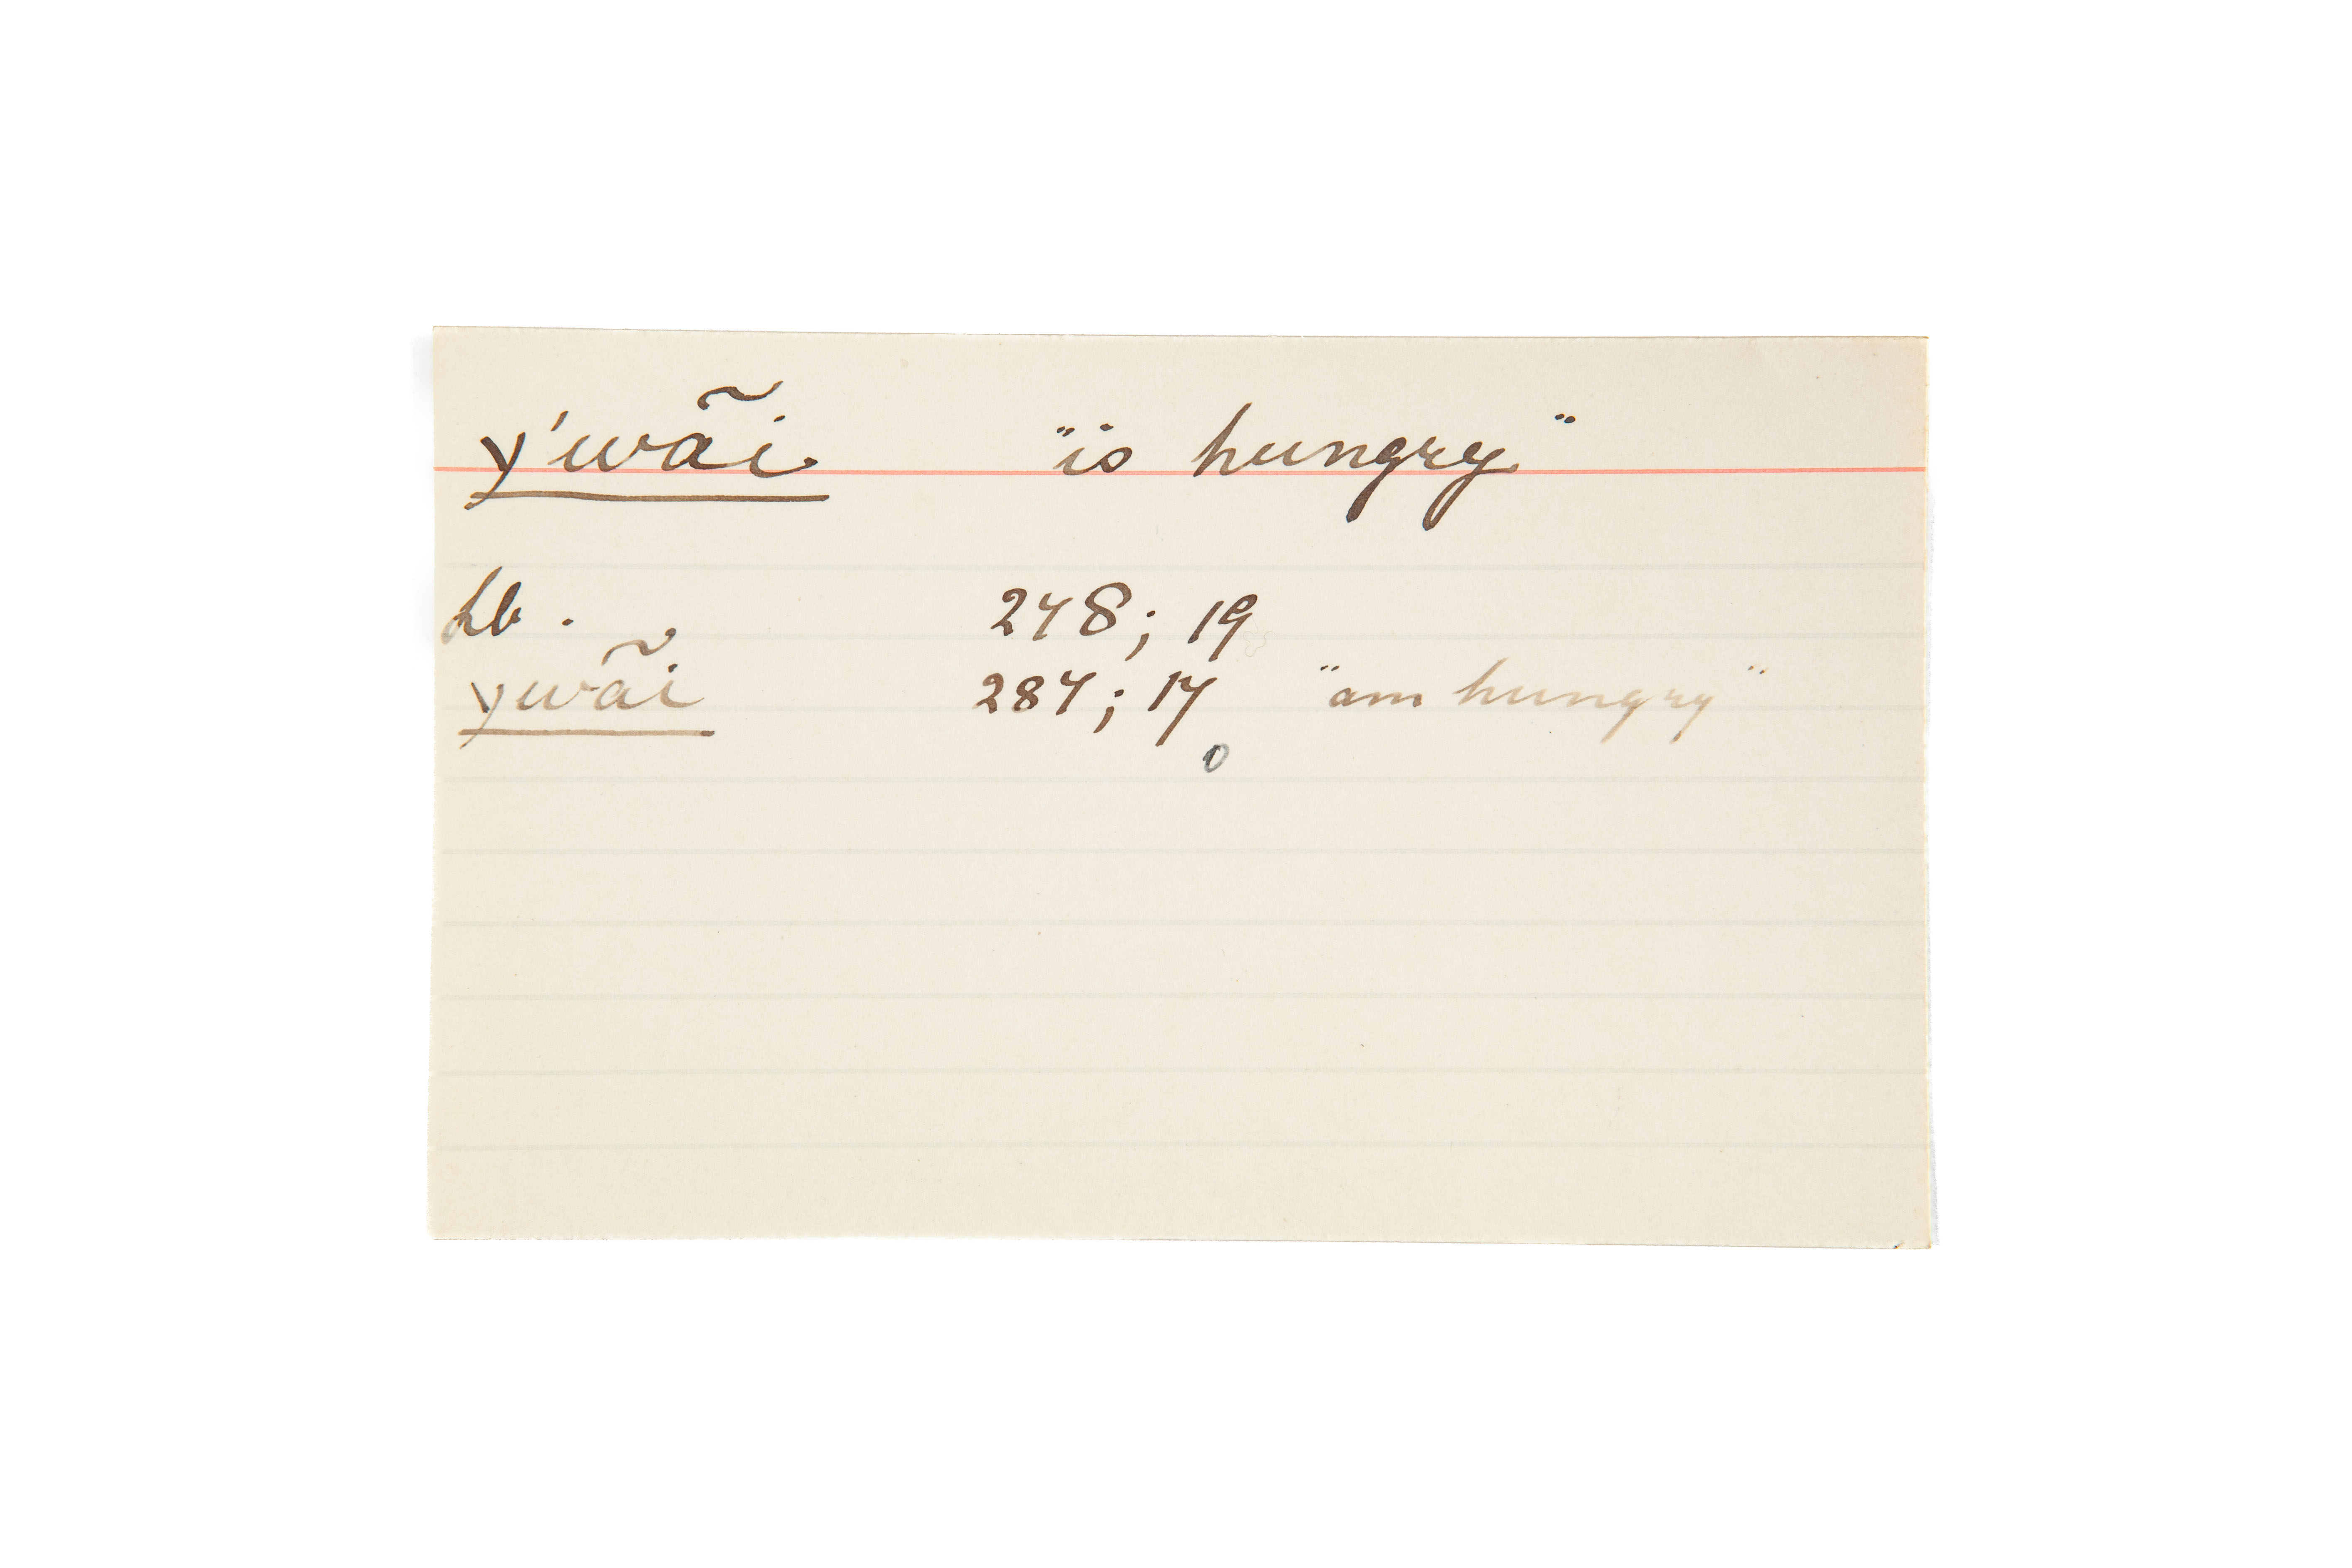 y'wãi "is hungry"
hb. 248; 19
ywãi 284; 14 "am hungry"
0